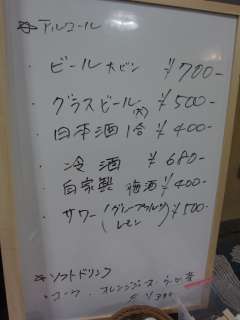 ☆アルコール
・ビール 大ビン ¥700-
・グラスビール(大) ¥500-
・日本酒1合 ¥400-
・冷酒 ¥680-
・自家製 梅酒 ¥400-
・サワー(グレープフルーツ ¥500-
レモン)
☆ソフトドリンク
・コーク ・オレンジジュース・ウーロン茶
¥300